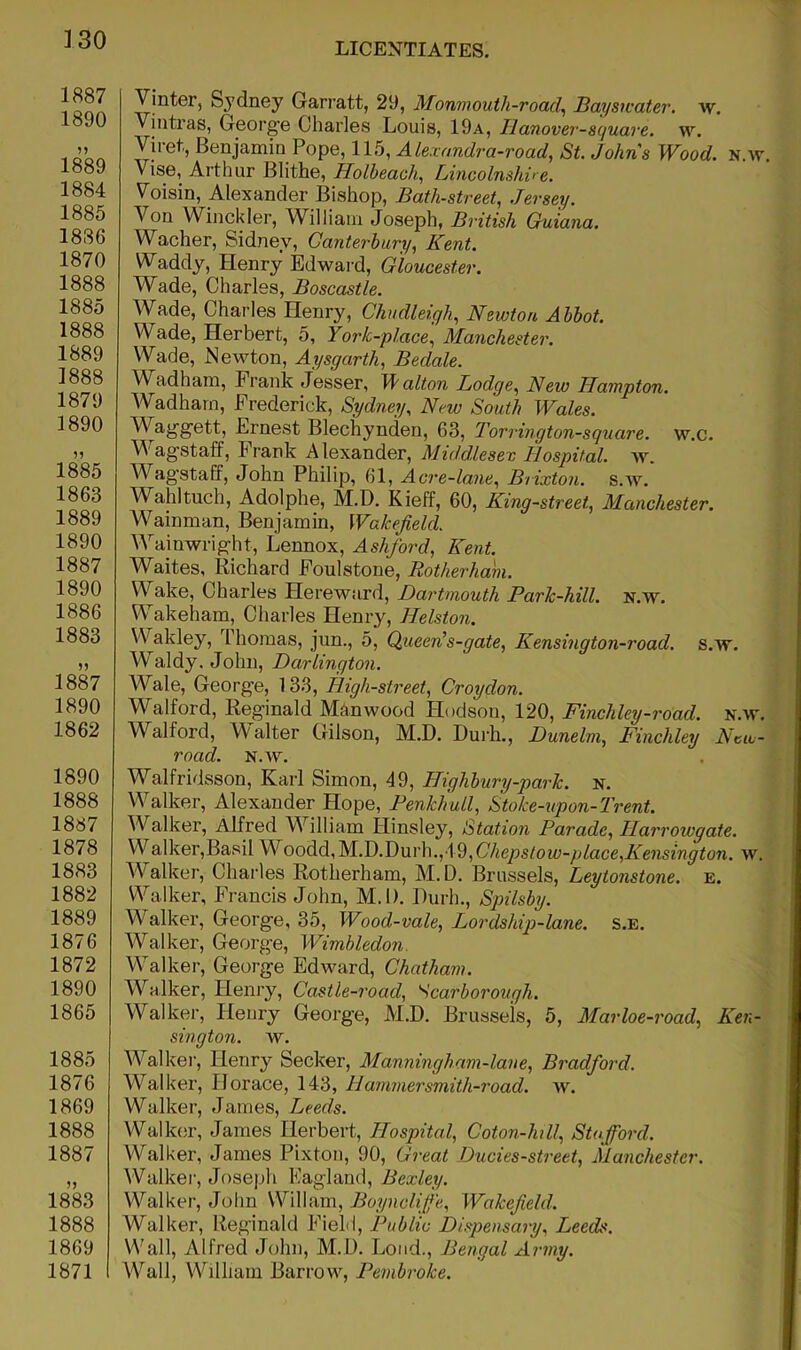 130
LICENTIATES.
1887 Vinter, Sydney Garratt, 29, Monmouth-road, Bayswater. W.
1890 Vintras, George Charles Louis, 19A, Hanover-square. W.
„ Viret, Benjamin Pope, 115, Alexandra-road, St. John's Wood. N.W.
1889 Vise, Arthur Blithe, Holbeach, Lincolnshire.
1884 Voisin, Alexander Bishop, Bath-street, Jersey.
1885 Von Winckler, William Joseph, British Guiana.
1886 Wacher, Sidney, Canterbury, Kent.
1870 Waddy, Henry Edward, Gloucester.
1888 Wade, Charles, Boscastle.
1885 Wade, Charles Henry, Chudleigh, Newton Abbot.
1888 Wade, Herbert, 5, York-place, Manchester.
1889 Wade, Newton, Aysgarth, Bedale.
1888 Wadham, Frank Jesser, Walton Lodge, New Hampton.
1879 Wadham, Frederick, Sydney, New South Wales.
1890 Waggett, Ernest Blechynden, 63, Torrington-square. W.C.
„ Wagstaff, Frank Alexander, Middlesex Hospital. W.
1885 Wagstaff, John Philip, 61, Acre-lane, Brixton. S.W.
1863 Wahltuch, Adolphe, M.D. Kieff, 60, King-street, Manchester.
1889 Wainman, Benjamin, Wakefield.
1890 Wainwright, Lennox, Ashford, Kent.
1887 Waites, Richard Foulstone, Rotherham.
1890 Wake, Charles Hereward, Dartmouth Park-hill. N.W.
1886 Wakeham, Charles Henry, Helston.
1883 Wakley, Thomas, jun., 5, Queen's-gate, Kensington-road. S.W.
„ Waldy, John, Darlington.
1887 Wale, George, 133, High-street, Croydon.
1890 Walford, Reginald Manwood Hodson, 120, Finchley-road. N.W.
1862 Walford, Walter Gilson, M.D. Durh., Dunelm, Finchley New-
road. N.W.
1890 Walfridsson, Karl Simon, 49, Highbury-park. N.
1888 Walker, Alexander Hope, Penkhull, Stoke-upon-Trent.
1887 Walker, Alfred William Hinsley, Station Parade, Harrowgate.
1878 Walker, Basil Woodd, M.D. Durh., 49, Chepstow-place, Kensington. W.
1883 Walker, Charles Rotherham, M.D. Brussels, Leytonstone. E.
1882 Walker, Francis John, M.D. Durh., Spilsby.
1889 Walker, George, 35, Wood-vale, Lordship-lane. S.E.
1876 Walker, George, Wimbledon.
1872 Walker, George Edward, Chatham.
1890 Walker, Henry, Castle-road, Scarborough.
1865 Walker, Henry George, M.D. Brussels, 5, Marloe-road, Ken-
sington. W.
1885 Walker, Henry Secker, Manningham-lane, Bradford.
1876 Walker, Horace, 143, Hammersmith-road. W.
1869 Walker, James, Leeds.
1888 Walker, James Herbert, Hospital, Coton-hill, Stafford.
1887 Walker, James Pixton, 90, Great Ducies-street, Manchester.
„ Walker, Joseph Eagland, Bexley.
1883 Walker, John Willam, Boyncliffe, Wakefield.
1888 Walker, Reginald Field, Public Dispensary, Leeds.
1869 Wall, Alfred John, M.D. Lond., Bengal Army.
1871 Wall, William Barrow, Pembroke.